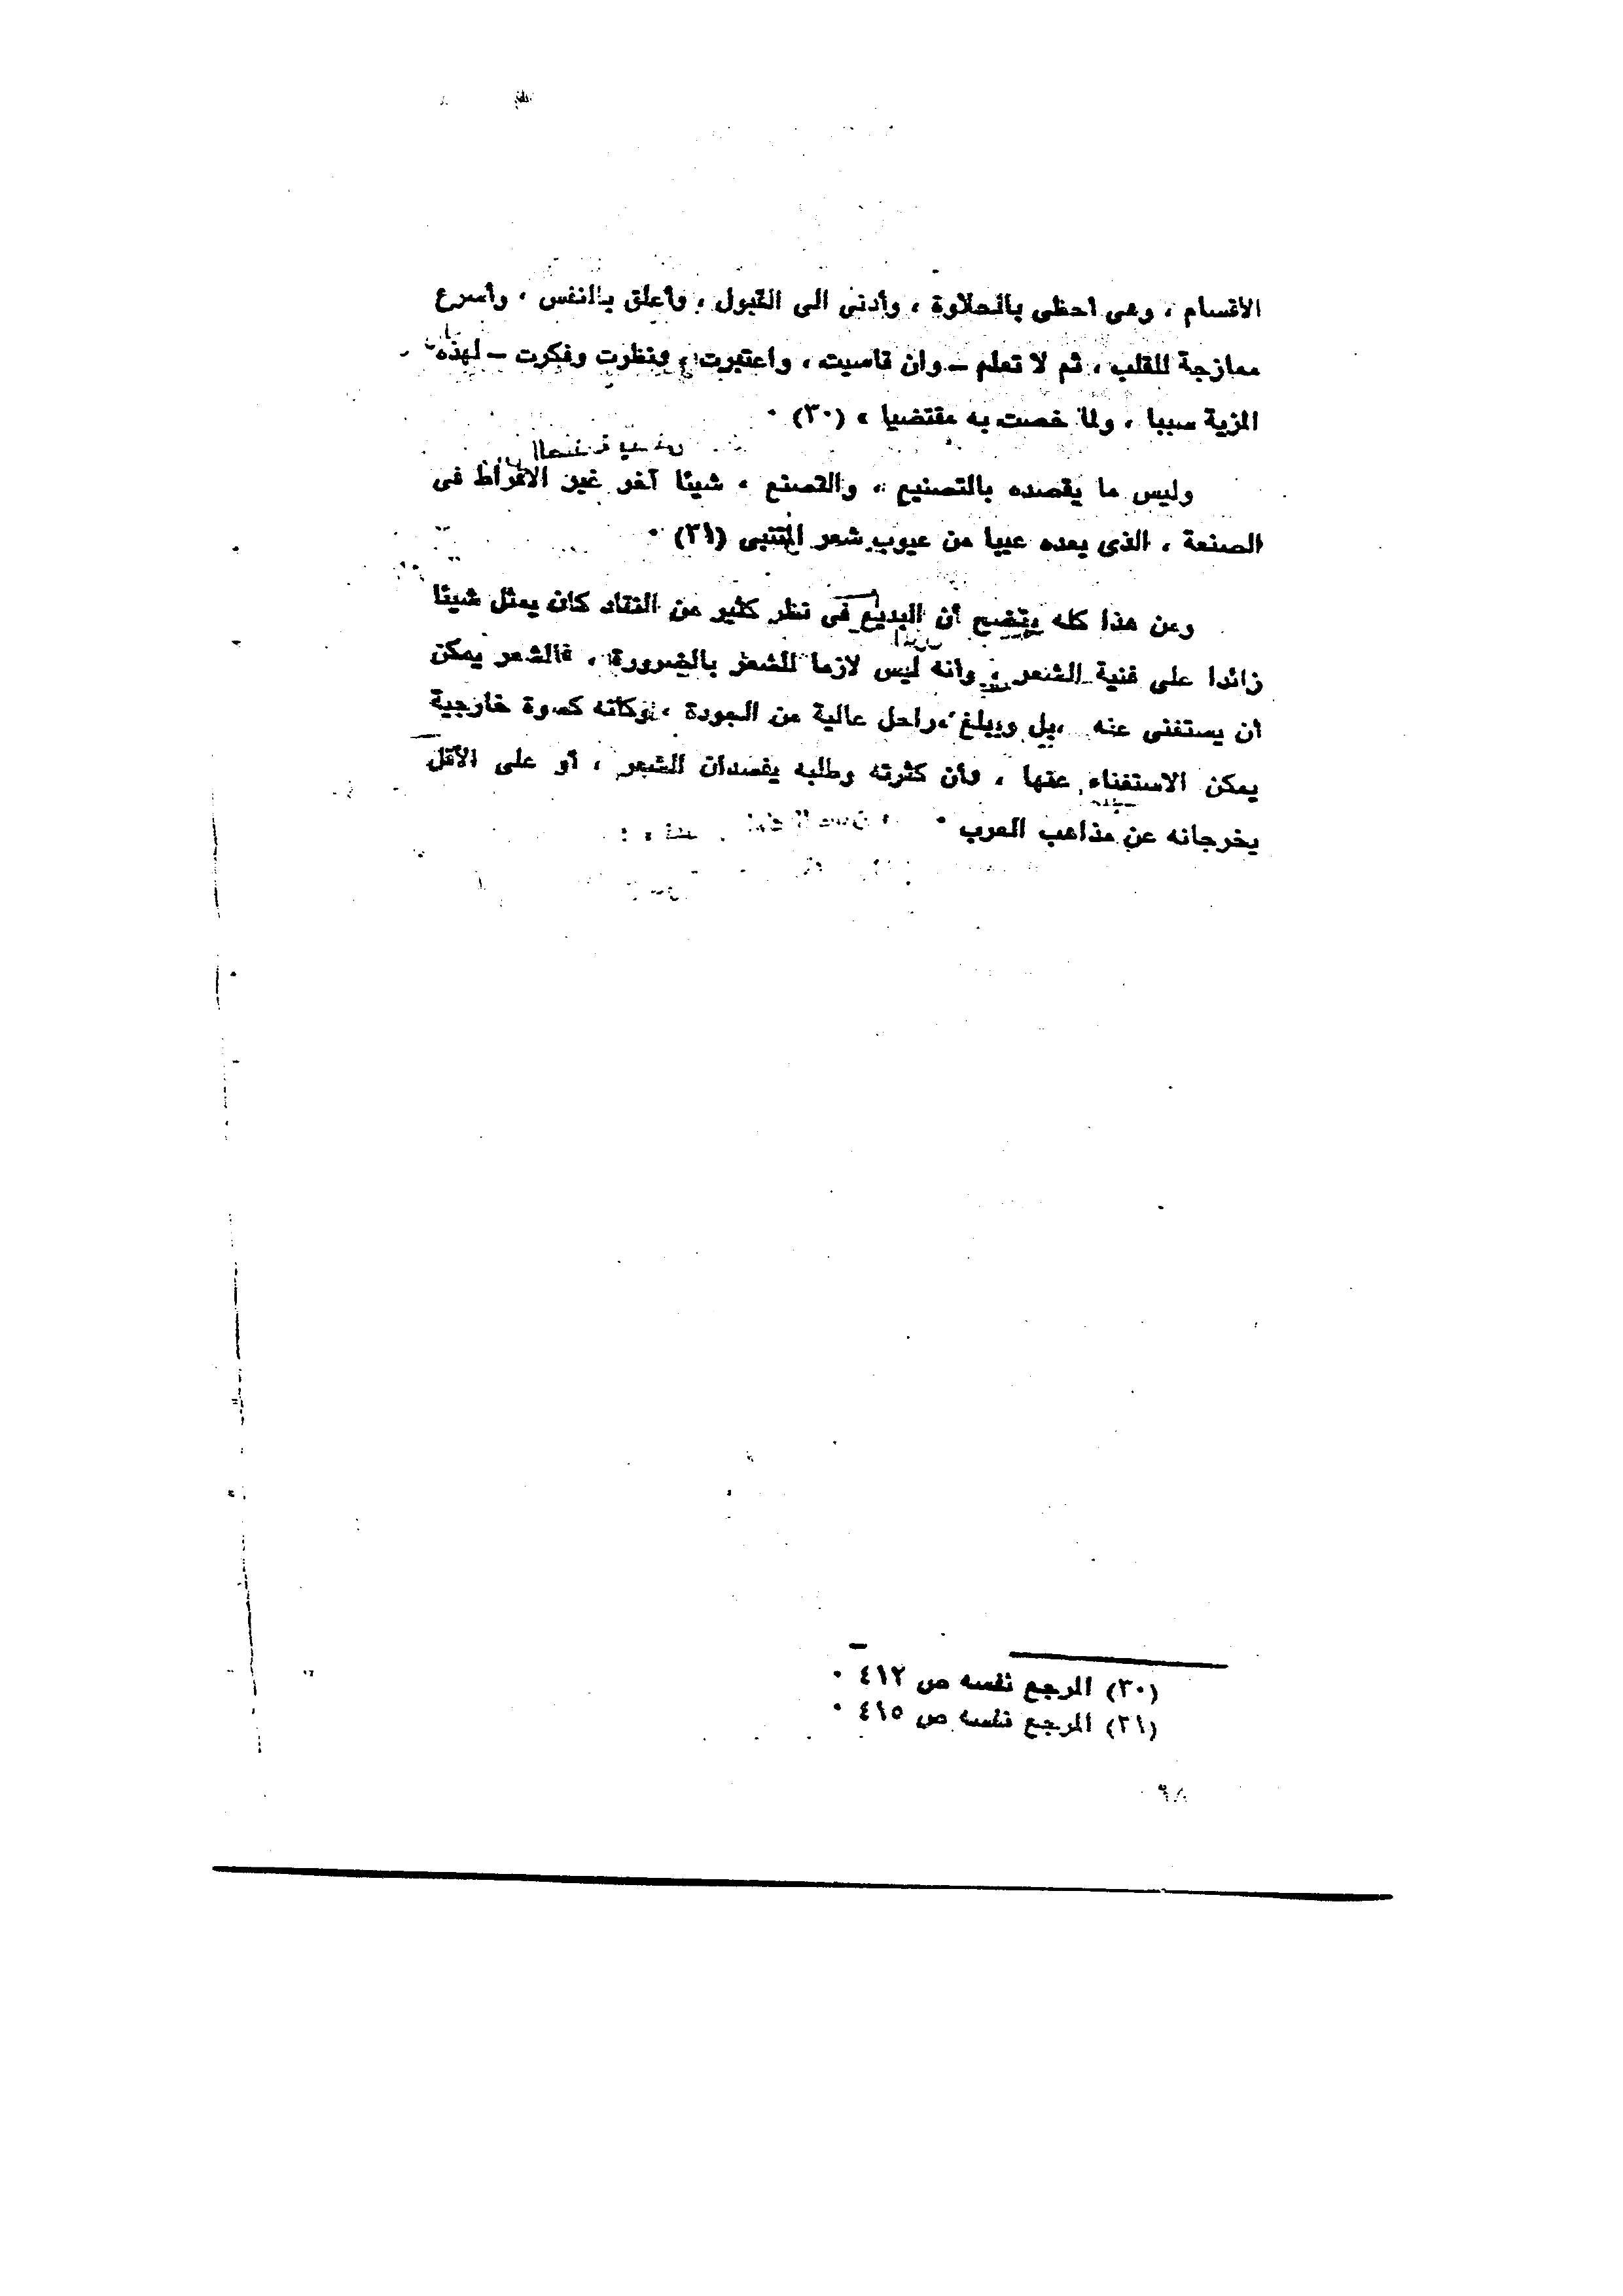 الأقسام ، وهى أحظى بالحلاوة ، وأدنى الى القبول ، وأعلق بالنفس ، وأسرع
ممازجة للقلب ، ثم لا تعلم – وان قاسيت ، واعتبرت ، ونظرت وفكرت – لهذه
المزية سببا ، ولما خصت به مقتضيا » (٣٠) ٠
وليس ما يقصده بالتصنيع ، والتصنع ، شيئا آخر غير الافراط فى
الصنعة ، الذى يعده عيبا من عيوب شعر المتنبى (٣١) ٠
ومن هذا كله يتضح أن البديع فى نظر كثير من النقاد كان يمثل شيئا
زائدا على فنية الشعر ، وأنه ليس لازما للشعر بالضرورة ، فالشعر يمكن
أن يستغنى عنه ، بل ويبلغ مراحل عالية من الجودة ، وكأنه كسوة خارجية
يمكن الاستغناء عنها ، وأن كثرته وطلبه يفسدان الشعر ، أو على الأقل
يخرجانه عن مذاهب العرب ٠
(٣٠) المرجع نفسه ص ٤١٢ ٠
(٣١) المرجع نفسه ص ٤١٥ ٠
٦٨